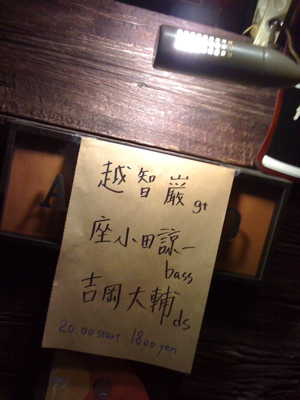 越智巌 gt
座小田諒一
bass
吉岡大輔 ds
20.00 start 1800 yen